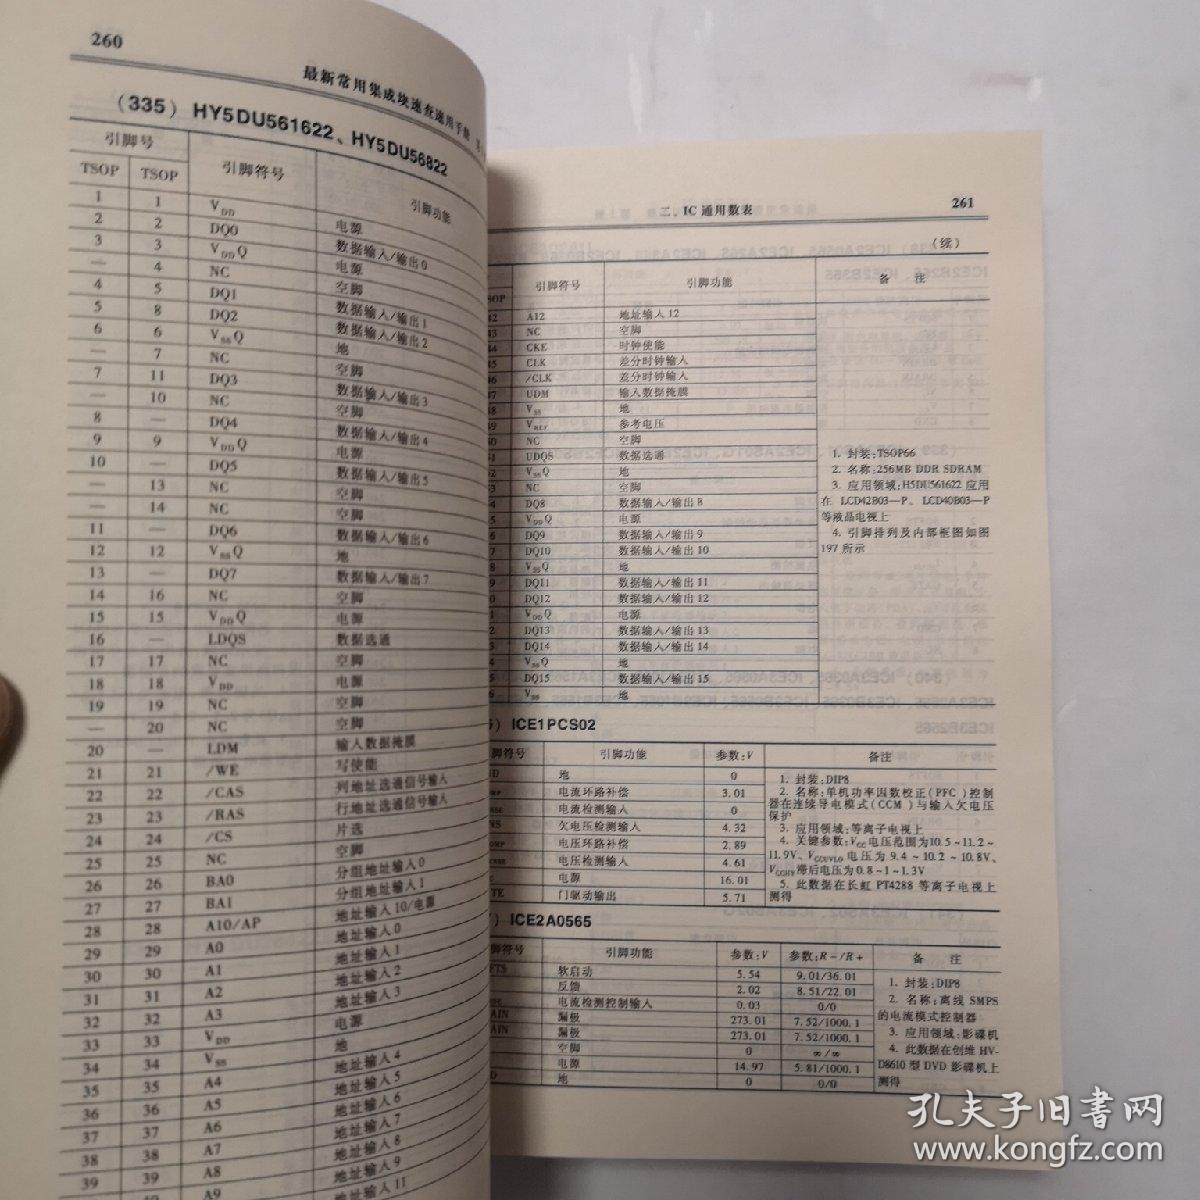 260
最新常用集成块速查速用手册
(335) HY5DU561622、HY5DU56822
引脚号 引脚符号 引脚功能
TSOP TSOP
1 1 VDD 电源
2 2 DQ0 数据输入/输出0
3 3 VDDQ 电源
— 4 NC 空脚
4 5 DQ1 数据输入/输出1
5 8 DQ2 数据输入/输出2
6 6 VSSQ 地
— 7 NC 空脚
7 11 DQ3 数据输入/输出3
— 10 NC 空脚
8 — DQ4 数据输入/输出4
9 9 VDDQ 电源
10 — DQ5 数据输入/输出5
— 13 NC 空脚
— 14 NC 空脚
11 — DQ6 数据输入/输出6
12 12 VSSQ 地
13 — DQ7 数据输入/输出7
14 16 NC 空脚
15 15 VDDQ 电源
16 — LDQS 数据选通
17 17 NC 空脚
18 18 VDD 电源
19 19 NC 空脚
— 20 NC 空脚
20 — LDM 输入数据掩膜
21 21 /WE 写使能
22 22 /CAS 列地址选通信号输入
23 23 /RAS 行地址选通信号输入
24 24 /CS 片选
25 25 NC 空脚
26 26 BA0 分组地址输入0
27 27 BA1 分组地址输入1
28 28 A10/AP 地址输入10/电源
29 29 A0 地址输入0
30 30 A1 地址输入1
31 31 A2 地址输入2
32 32 A3 地址输入3
33 33 VDD 电源
34 34 VSS 地
35 35 A4 地址输入4
36 36 A5 地址输入5
37 37 A6 地址输入6
38 38 A7 地址输入7
39 39 A8 地址输入8
A9 地址输入9
地址输入11
二、IC通用数表 261
(续)
引脚符号 引脚功能 备 注
A12 地址输入12
NC 空脚
CKE 时钟使能
CLK 差分时钟输入
/CLK 差分时钟输入
UDM 输入数据掩膜
VSS 地
VREF 参考电压
NC 空脚
UDQS 数据选通
VSSQ 地
NC 空脚
DQ8 数据输入/输出8
VDDQ 电源
DQ9 数据输入/输出9
DQ10 数据输入/输出10
VSSQ 地
DQ11 数据输入/输出11
DQ12 数据输入/输出12
VDDQ 电源
DQ13 数据输入/输出13
DQ14 数据输入/输出14
VSSQ 地
DQ15 数据输入/输出15
VSS 地
1. 封装:TSOP66
2. 名称:256MB DDR SDRAM
3. 应用领域:H5DU561622应用
在 LCD42B03—P、LCD40B03—P
等液晶电视上
4. 引脚排列及内部框图如图
197所示
) ICE1PCS02
脚符号 引脚功能 参数:V 备注
地 0
电流环路补偿 3.01
电流检测输入 0
欠电压检测输入 4.32
电压环路补偿 2.89
电压检测输入 4.61
电源 16.01
门驱动输出 5.71
1. 封装:DIP8
2. 名称:单机功率因数校正(PFC)控制
器在连续导电模式(CCM)与输入欠电压
保护
3. 应用领域:等离子电视上
4. 关键参数:VCC电压范围为10.5~11.2~
11.9V、VCCUVLO电压为9.4~10.2~10.8V、
VCCHY滞后电压为0.8~1~1.3V
5. 此数据在长虹PT4288等离子电视上
测得
) ICE2A0565
脚符号 引脚功能 参数:V 参数:R-/R+ 备 注
软启动 5.54 9.01/36.01
反馈 2.02 8.51/22.01
电流检测控制输入 0.03 0/0
漏极 273.01 7.52/1000.1
漏极 273.01 7.52/1000.1
空脚 0 ∞/∞
电源 14.97 5.81/1000.1
地 0 0/0
1. 封装:DIP8
2. 名称:离线SMPS
的电流模式控制器
3. 应用领域:影碟机
4. 此数据在创维HV-
D8610型DVD影碟机上
测得
孔夫子旧书网
www.kongfz.com